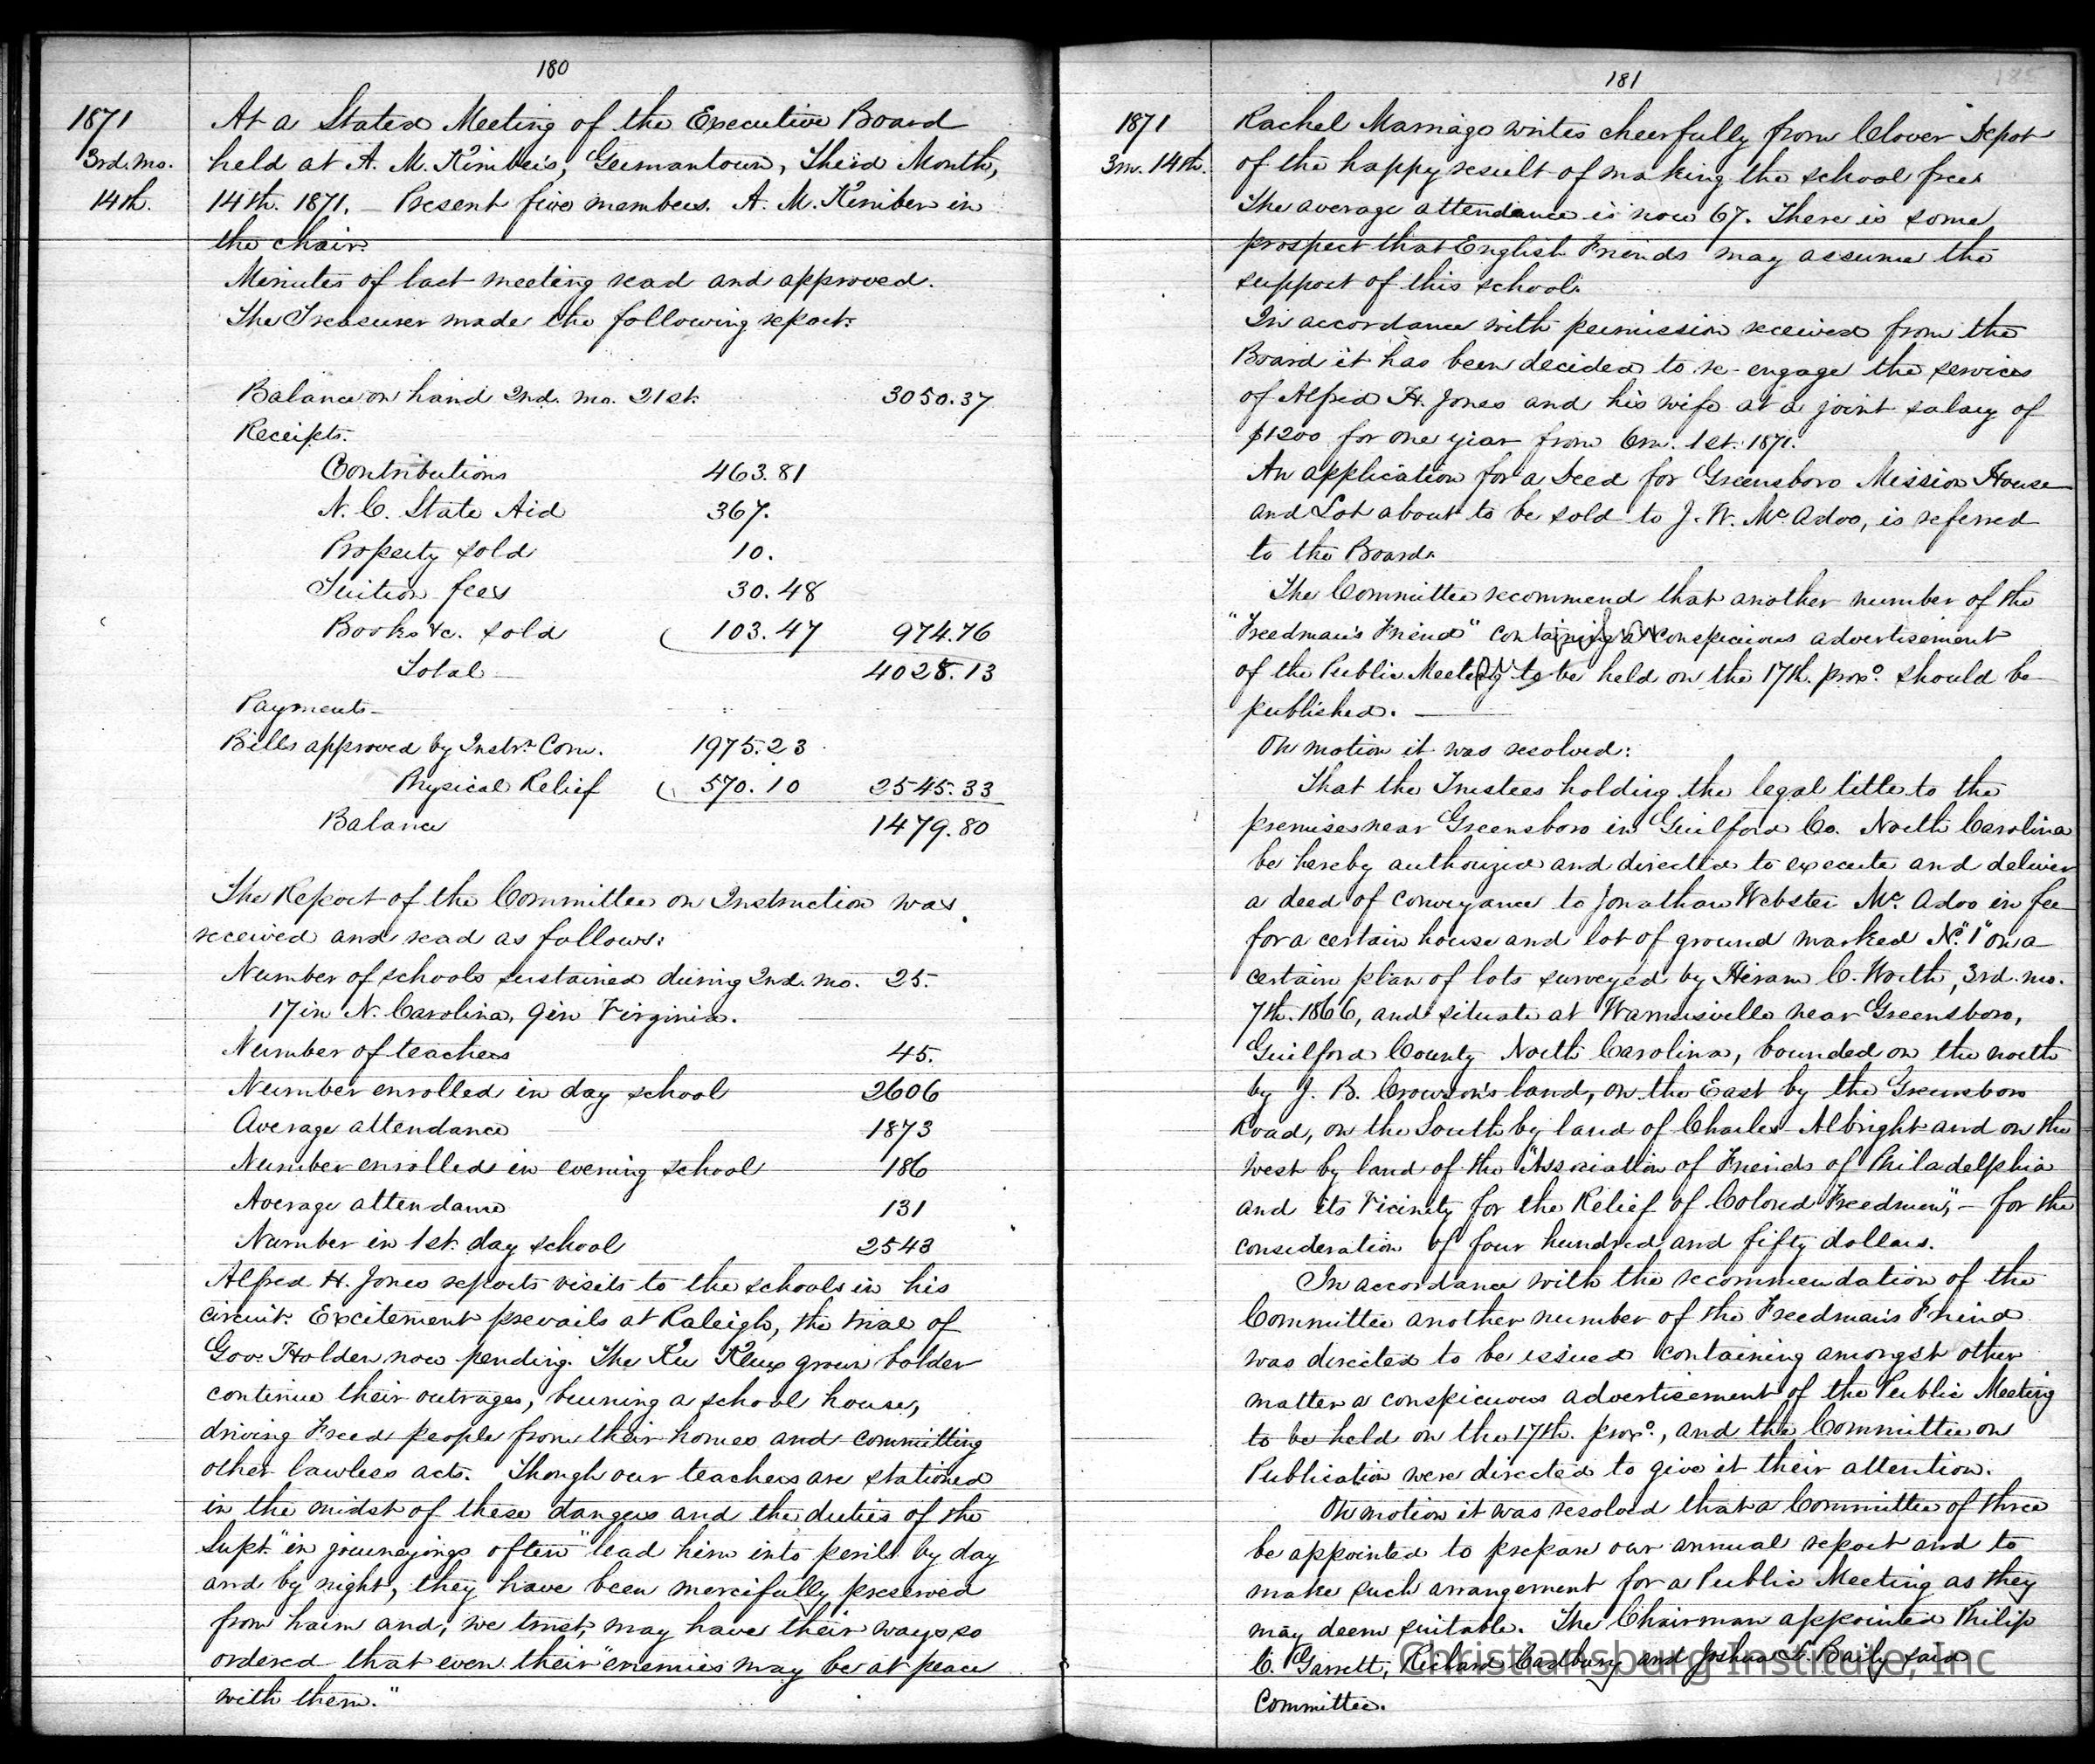 180
1871
3rd. mo.
14th.
At a Stated Meeting of the Executive Board
held at A. M. Kimber's, Germantown, Third Month,
14th. 1871. – Present five members. A. M. Kimber in
the chair.
Minutes of last meeting read and approved.
The Treasurer made the following report:
Balance on hand 2nd. mo. 21st. 3050.37
Receipts.
Contributions 463.81
N. C. State Aid 367.
Property sold 10.
Tuition fees 30.48
Books &c. sold 103.47 974.76
Total 4025.13
Payments
Bills approved by Instrn. Com. 1975.23
Physical Relief 570.10 2545.33
Balance 1479.80
The Report of the Committee on Instruction was
received and read as follows:
Number of schools sustained during 2nd. mo. 25.
17 in N. Carolina, 9 in Virginia.
Number of teachers 45.
Number enrolled in day school 2606
Average attendance 1873
Number enrolled in evening school 186
Average attendance 131
Number in 1st. day school 2543
Alfred H. Jones reports visits to the schools in his
circuit. Excitement prevails at Raleigh, the trial of
Gov. Holden now pending. The Ku Klux grown bolder
continue their outrages, burning a school house,
driving Freed people from their homes and committing
other lawless acts. Though our teachers are stationed
in the midst of these dangers and the duties of the
Supt. "in journeyings often" lead him into perils by day
and by night, they have been mercifully preserved
from harm and, we trust, may have their ways so
ordered that even their "enemies may be at peace
with them."
181
1871
3m. 14th.
Rachel Marriage writes cheerfully from Clover Depot
of the happy result of making the school free.
The average attendance is now 67. There is some
prospect that English Friends may assume the
support of this school.
In accordance with permission received from the
Board it has been decided to re-engage the services
of Alfred H. Jones and his wife at a joint salary of
$1200 for one year from 6m. 1st. 1871.
An application for a Deed for Greensboro Mission House
and Lot about to be sold to J. W. McAdoo, is referred
to the Board.
The Committee recommend that another number of the
"Freedman's Friend" containing a conspicuous advertisement
of the Public Meeting to be held on the 17th. proxo. should be
published.
On motion it was resolved:
That the Trustees holding the legal title to the
premises near Greensboro in Guilford Co. North Carolina
be hereby authorized and directed to execute and deliver
a deed of conveyance to Jonathan Webster McAdoo in fee
for a certain house and lot of ground marked No. "1" on a
certain plan of lots surveyed by Hiram C. Worth, 3rd. mo.
7th. 1866, and situate at Warnersville near Greensboro,
Guilford County North Carolina, bounded on the north
by J. B. Crowson's land, on the East by the Greensboro
Road, on the South by land of Charles Albright and on the
west by land of the "Association of Friends of Philadelphia
and its Vicinity for the Relief of Colored Freedmen", – for the
consideration of four hundred and fifty dollars.
In accordance with the recommendation of the
Committee another number of the Freedman's Friend
was directed to be issued containing amongst other
matter a conspicuous advertisement of the Public Meeting
to be held on the 17th. proxo., and the Committee on
Publication were directed to give it their attention.
On motion it was resolved that a Committee of three
be appointed to prepare our annual report and to
make such arrangement for a Public Meeting as they
may deem suitable. The Chairman appointed Philip
C. Garrett, Richard Cadbury and Joshua L. Baily said
Committee.
Christiansburg Institute, Inc